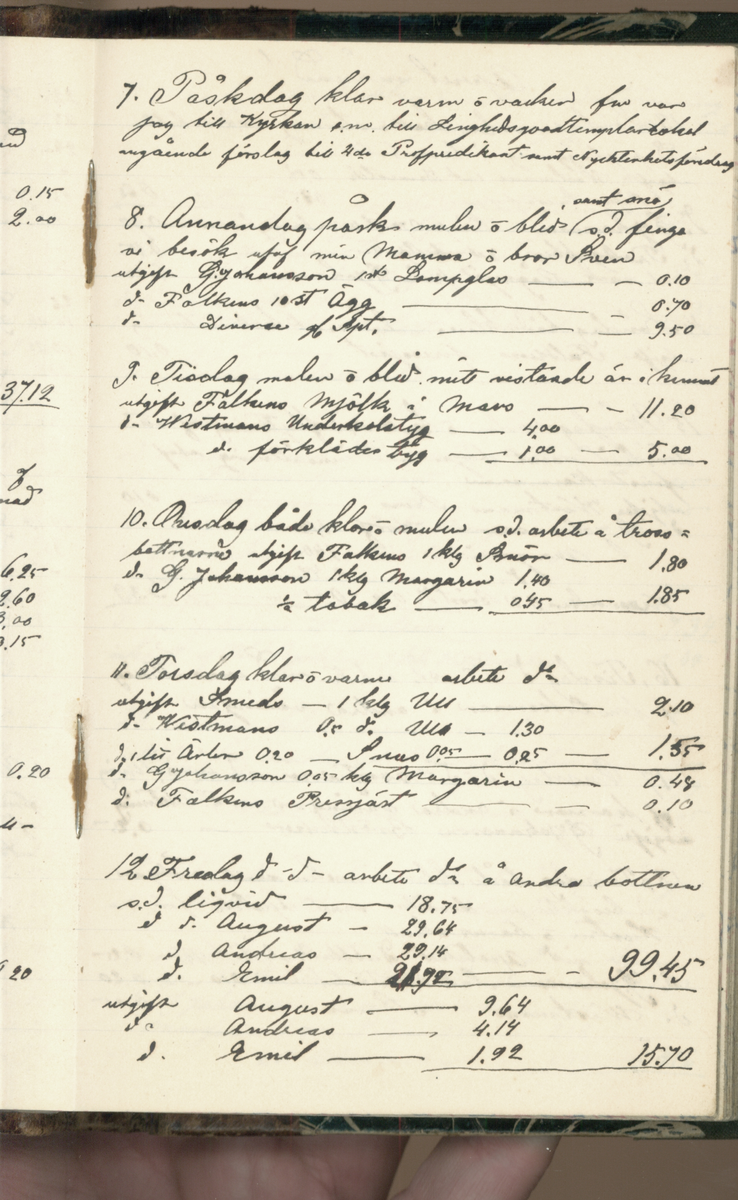 ad
0.15
2.00
37.12
nad
6.25
2.60
3.00
3.15
0.20
4-
20
7. Påskdag klar varm ō vacker fm var
jag till Kyrkan e.m. till Linghedsgoodtemplarlokal
angående förslag till 4de Profpredikant samt Nyckterhetsföredrag
samt snö
8. Annandag påsk mulen ō blid s.d. finga
vi besök utaf min Mamma ō bror Sven
utgift G. Johansson 1st Lampglas — — 0.10
d- Falkens 10 st Ägg — — 0.70
d- Diverse Apt. — — 9.50
9. Tisdag mulen ō blid mitt vistande är i hemmet
utgift Falkens Mjölk i Mars — — 11.20
d- Wistmans Underkolstyg — 4.00
d. förklädes tyg — 1.00 — 5.00
10. Onsdag både klar ō mulen s.d. arbete å tross=
bottnarna utgift Falkens 1 klg Snör — 1.80
d- G. Johansson 1 klg Margarin 1.40
½ tobak — 045 — 1.85
11. Torsdag klar ō varm arbete d-
utgift Smeds — 1 klg Ull — 2.10
d- Wistmans 0.5 d. Ull — 1.30
d. 1 lit Ärter 0.20 — Snus 0.05 — 0.25 — 1.55
d- G Johansson 0.05 klg Margarin — 0.48
d. Falkens Pressjäst — — 0.10
12 Fredag d- d- arbete d- å andra bottnen
s.d. liqvid — 18.75
d d. August — 29.64
d Andreas — 29.14
d. Emil — 21.92 — - 99.45
utgift August — 9.64
d- Andreas — 4.14
d. Emil — 1.92 15.70